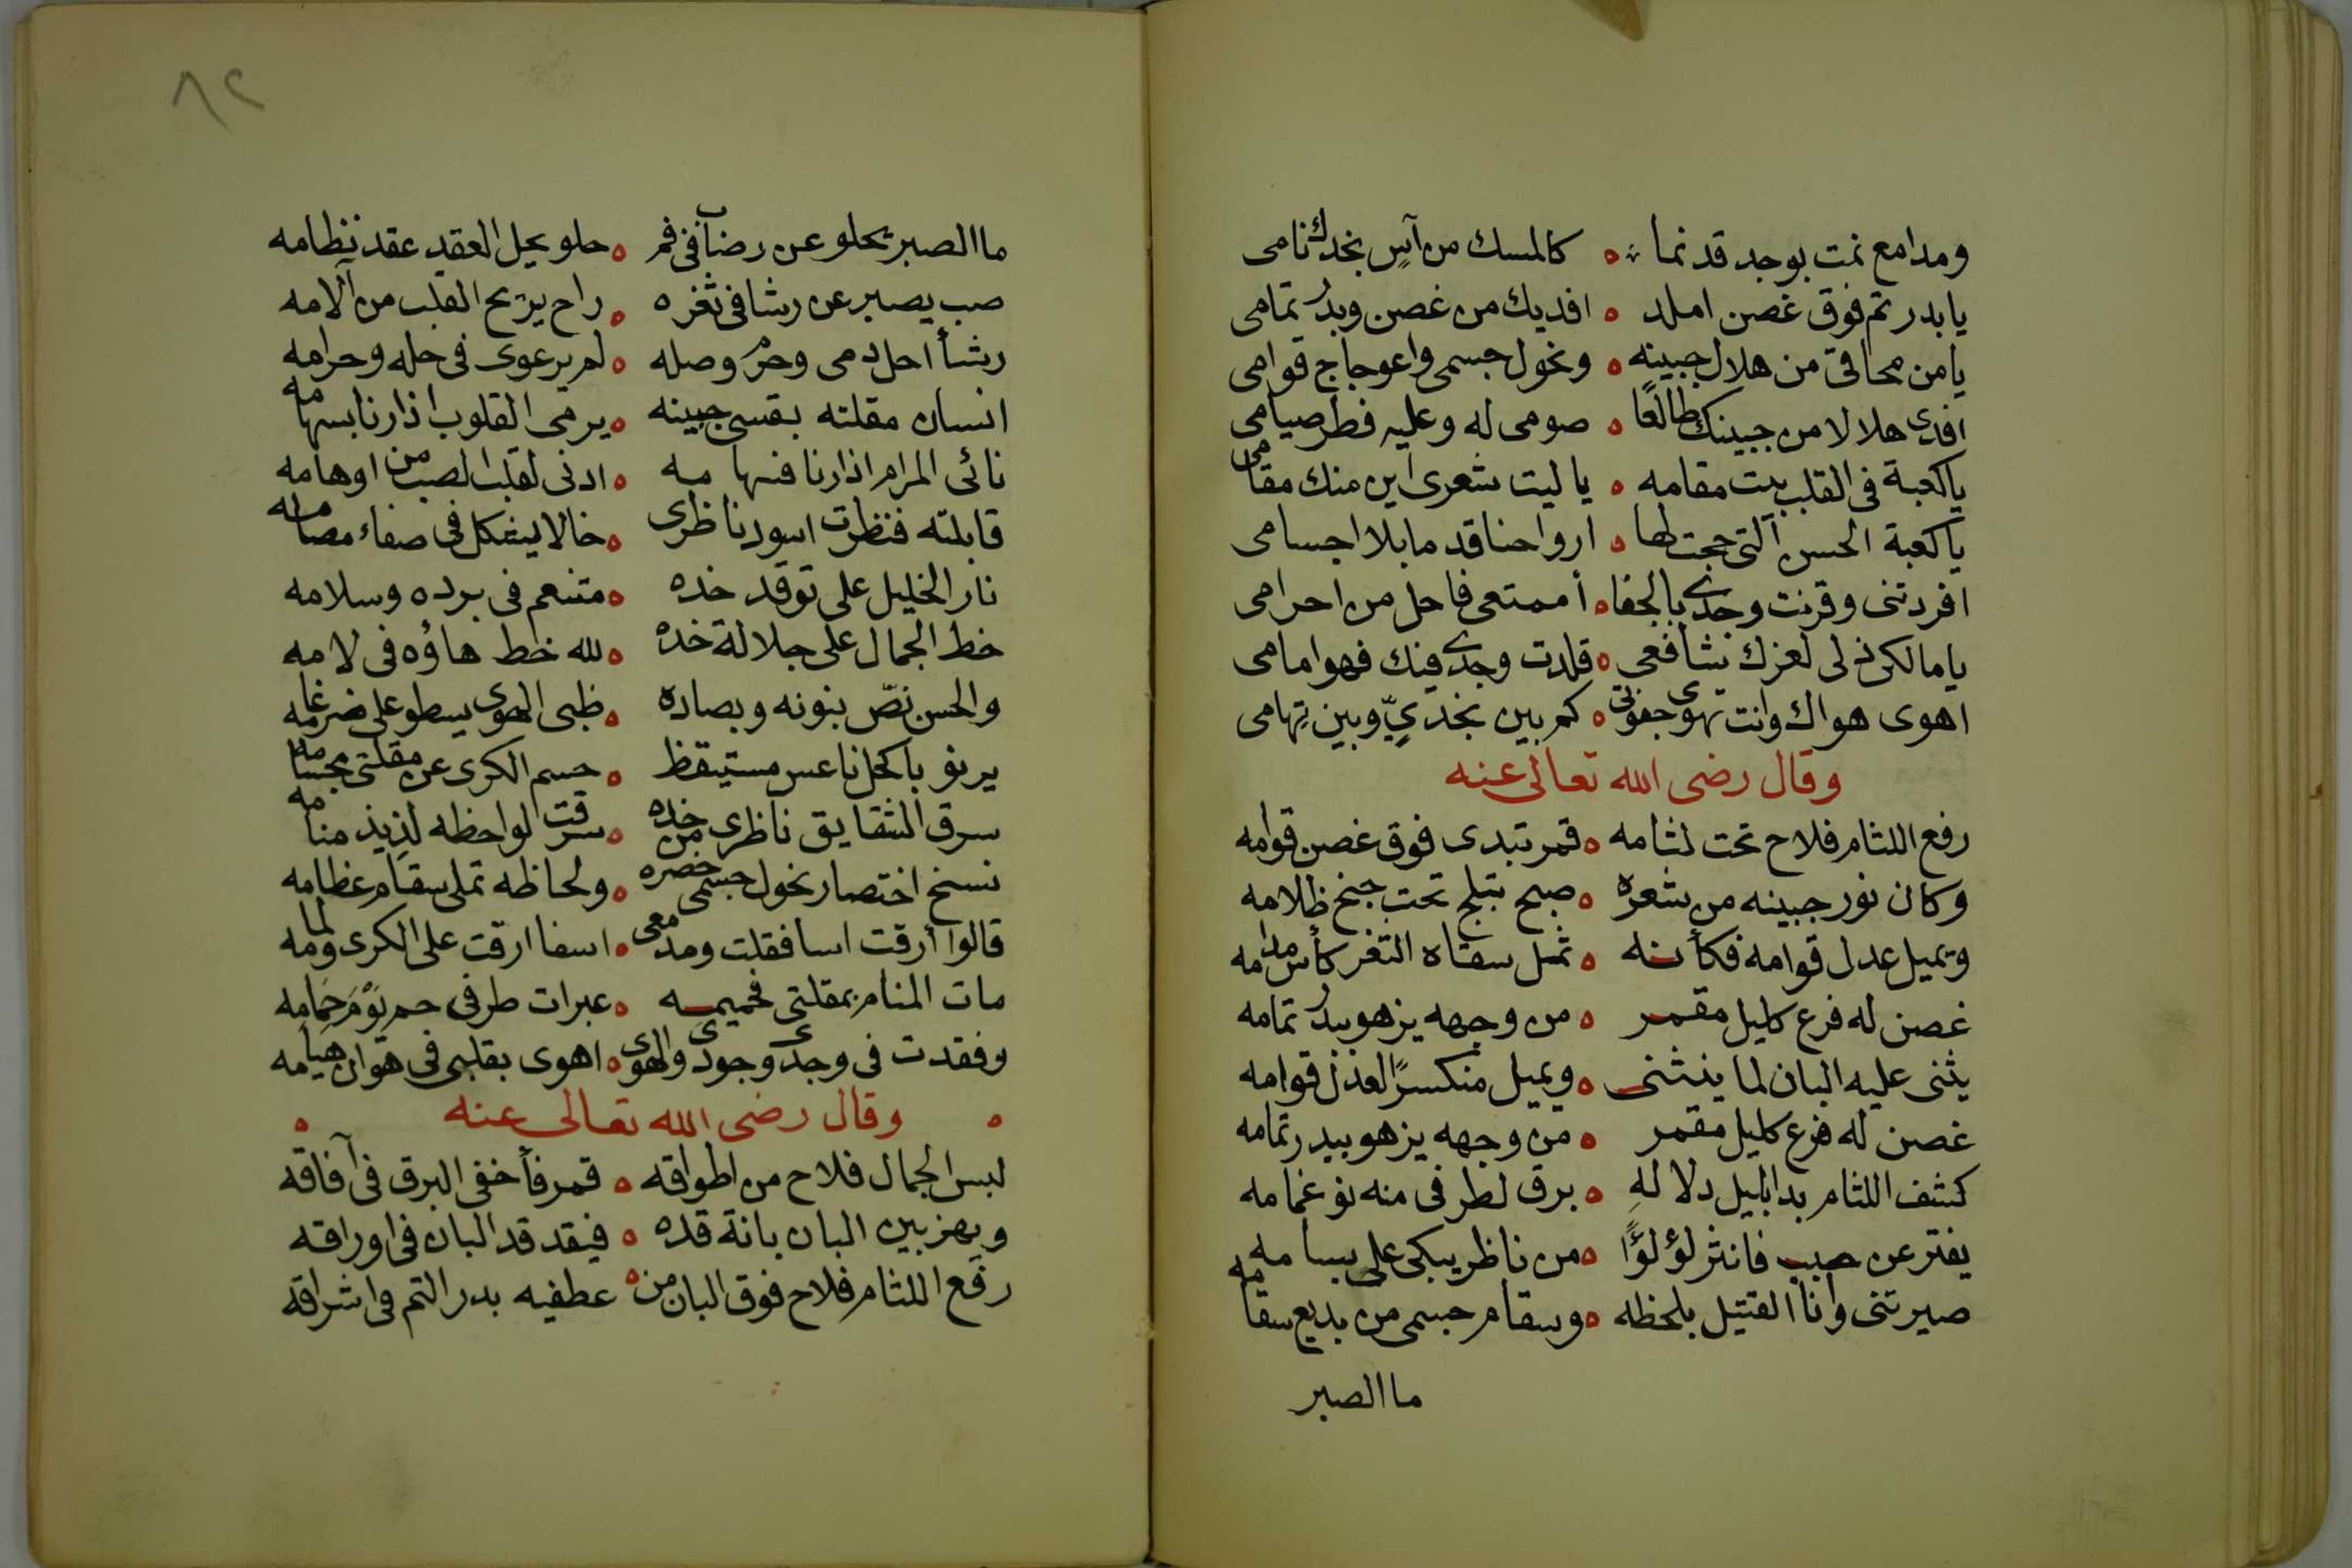 ومدامع نمت بوجد قد نما ؞ ه كالمسك من آسٍ بخدك نامى
يا بدر تم فوق غصن املد ه افديك من غصن وبدر تمامى
يا من محاقى من هلال جبينه ه ونحول جسمى واعوجاج قوامى
افدى هلالا من جبينك طالعًا ه صومى له وعليه فطر صيامى
يا كعبة فى القلب بيت مقامه ه يا ليت شعرى اين منك مقامى
يا كعبة الحسن التى حجت لها ه ارواحنا قدما بلا اجسامى
افردتنى وقرنت وجدى بالجفا ه أممتعى فاحل من احرامى
يا مالكى ذلى لعزك شافعى ه قلدت وجدى فيك فهو امامى
اهوى هواك وانت تهوى جفوتى ه كم بين نجدىٍّ وبين تِهامى
وقال رضى الله تعالى عنه
رفع اللثام فلاح تحت لثامه ه قمر تبدى فوق غصن قوامه
وكان نور جبينه من شعره ه صبح تبلج تحت جنح ظلامه
ويميل عدل قوامه فكأنه ه ثمل سقاه الثغر كأس مدامه
غصن له فرع كليل مقمر ه من وجهه يزهو ببدر تمامه
يثنى عليه البان لما ينثنى ه ويميل منكسرًا لعدل قوامه
غصن له فرع كليل مقمر ه من وجهه يزهو ببدر تمامه
كشف اللثام بدا بليل دلالهِ ه برق لطرفى منه نؤ غمامه
يفتر عن حبب فانثر لؤلؤًا ه من ناظر يبكى على بسامه
صيرتنى وأنا القتيل بلحظه ه وسقام جسمى من بديع سقامه
ما الصبر
٨٢
ما الصبر يحلو عن رضاب فى فم ه حلو يحل العقد عقد نظامه
صب يصبر عن رشا فى ثغره ه راح يريح القلب من آلامه
رشأ احل دمى وحرم وصله ه لم يرعوى فى حله وحرامه
انسان مقلته بقسى جبينه ه يرمى القلوب اذا رنا بسهامه
نائى المرام اذا رنا فسهامه ه ادنى لقلب الصب من اوهامه
قابلته فنظرت اسود ناظرى ه خالا يشكل فى صفاء مصامه
نار الخليل على توقد خده ه متنعم فى برده وسلامه
خط الجمال على جلالة خده ه لله خط هاؤه فى لامه
والحسن نصّ بنونه وبصاده ه ظبى الهوى يسطو على ضرغامه
يرنو باكحل ناعس مستيقظ ه حسم الكرى عن مقلتى بحسامه
سرق الشقايق ناظرى من خده ه سرقت لواحظه لذيذ منامه
نسخ اختصار نحول جسمى خصره ه ولحاظه تملى سقام عظامه
قالوا أرقت اسا فقلت ومدمعى ه اسفا ارقت على الكرى ولمامه
مات المنام بمقلتى فحميمه ه عبرات طرفى حم يَوْمَ حِمَامِه
وفقدت فى وجدى وجودى والهوى ه اهوى بقلبى فى هوان هيامه
ه وقال رضى الله تعالى عنه ه
لبس الجمال فلاح من اطواقه ه قمر فأخفى البرق فى آفاقه
ويهز بين البان بانة قده ه فيقد قد البان فى اوراقه
رفع اللثام فلاح فوق البان من ه عطفيه بدر التم فى اشراقه